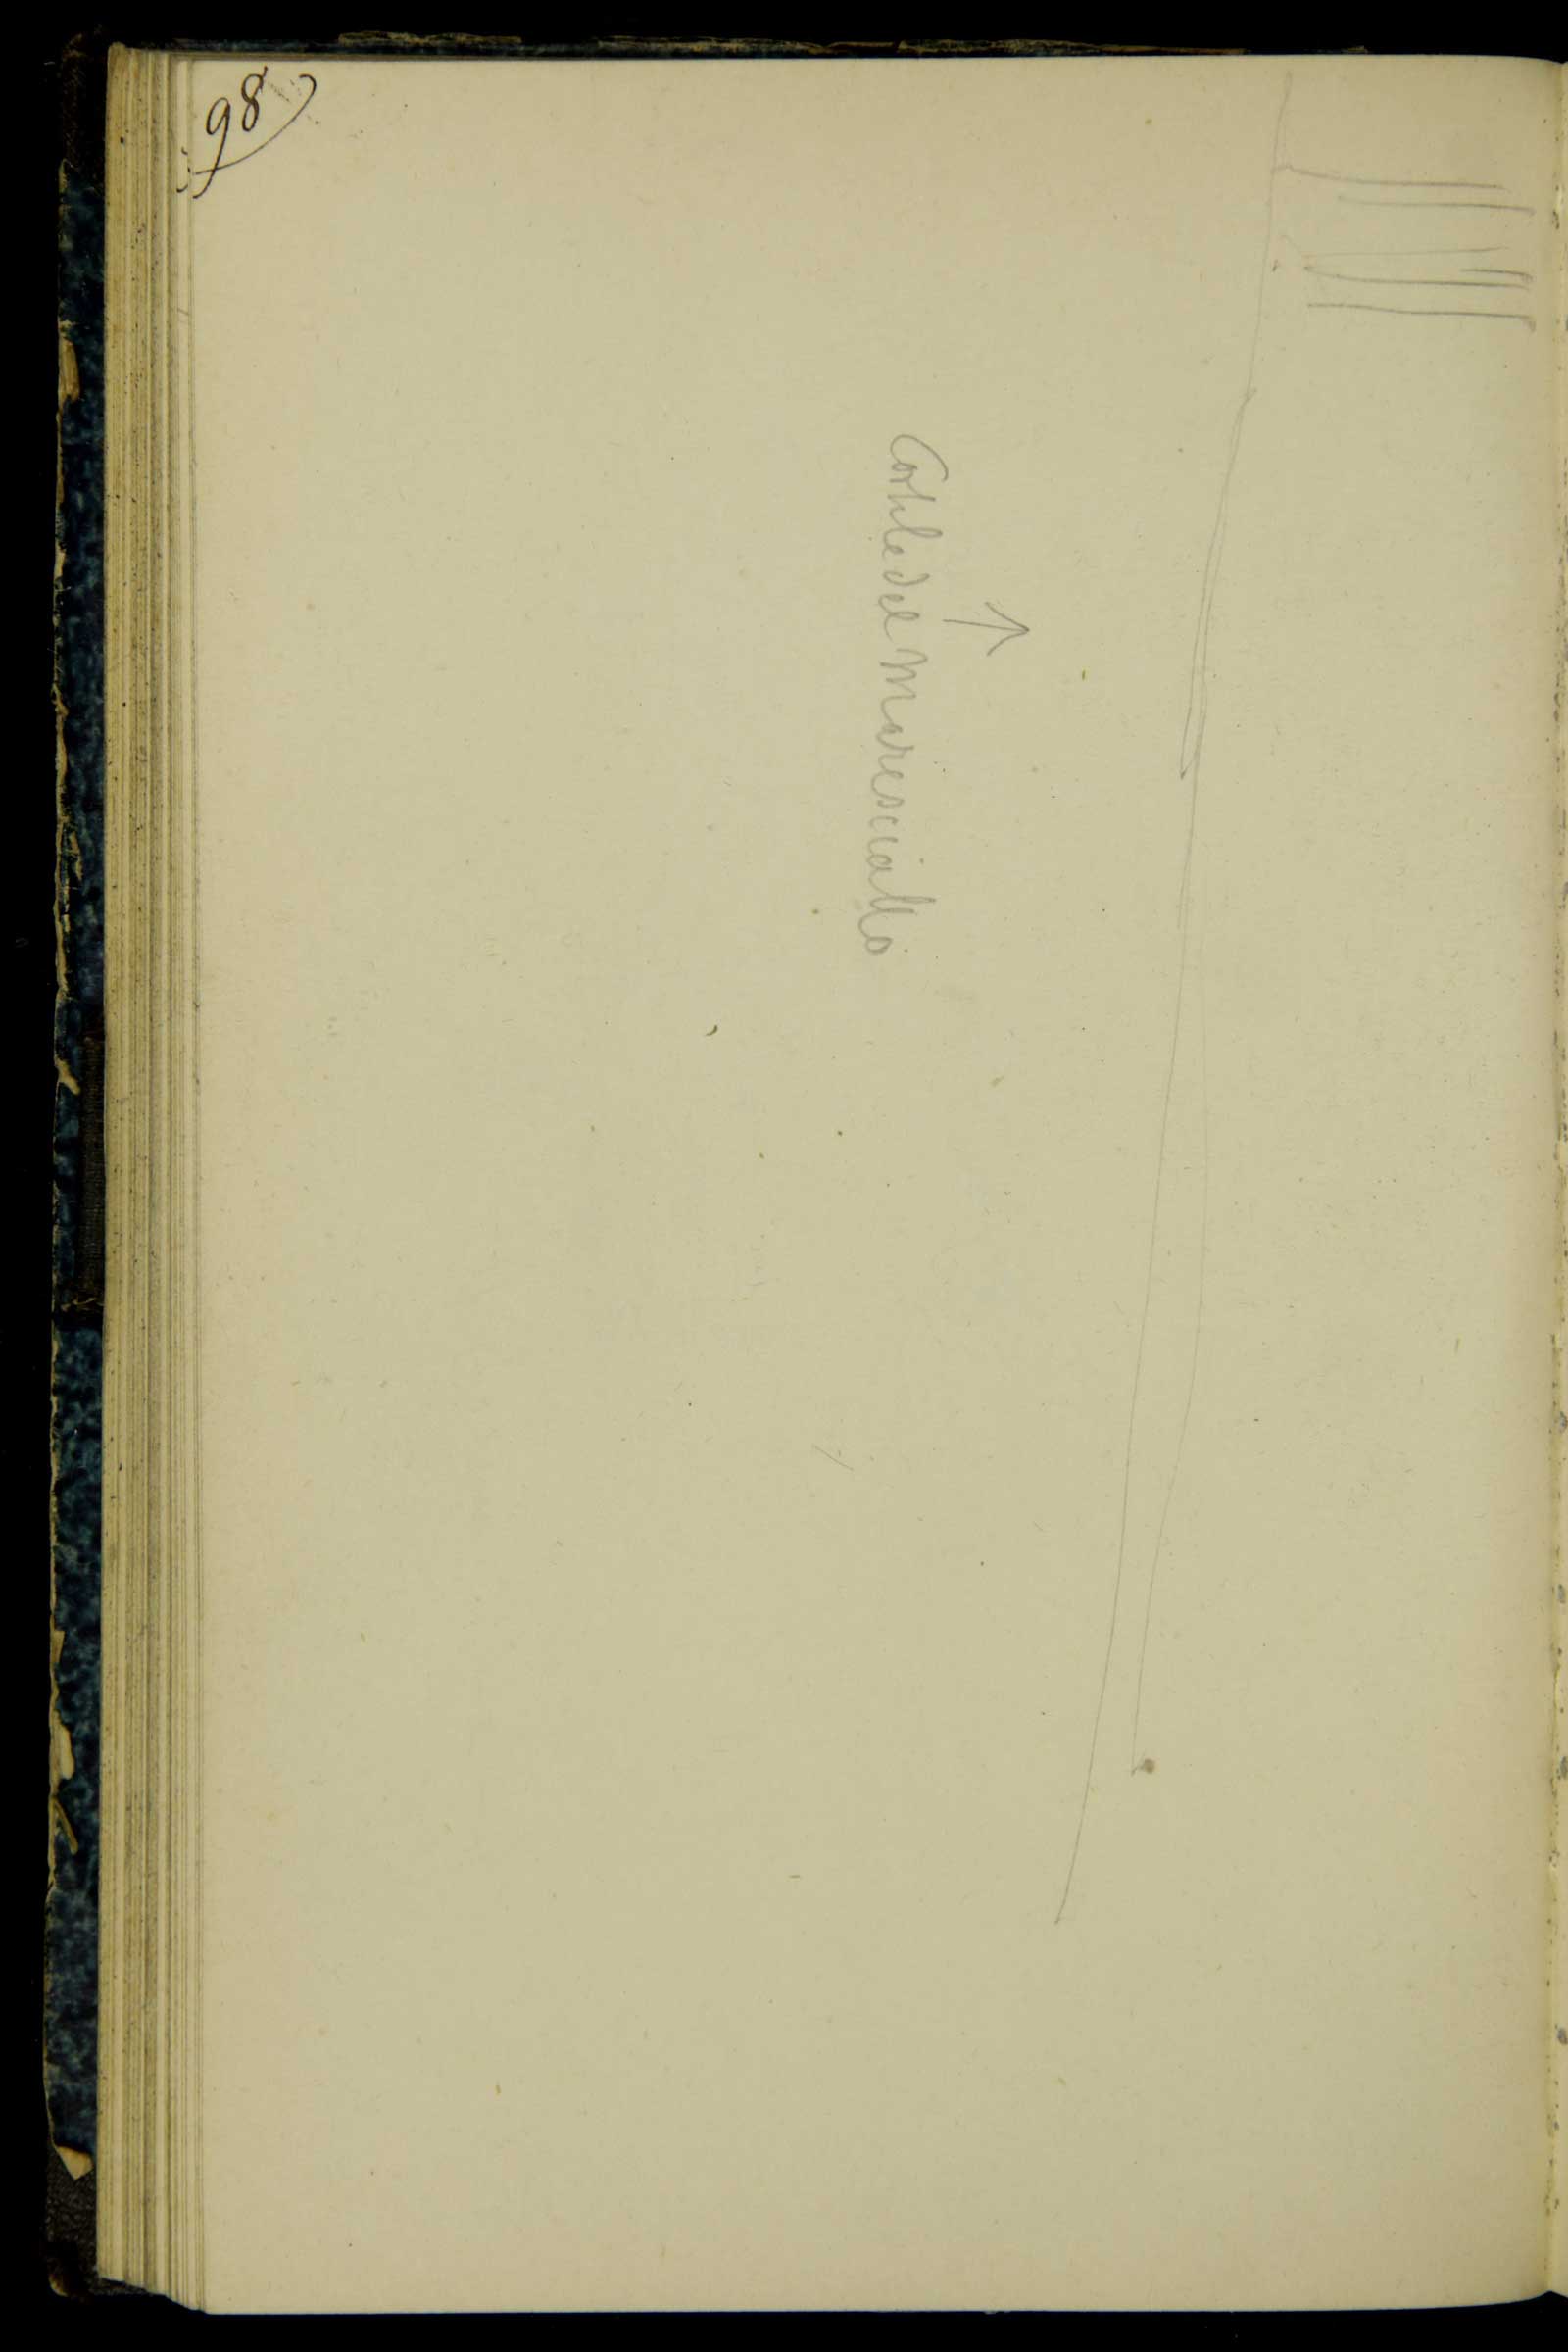 98
Cortile del Maresciallo